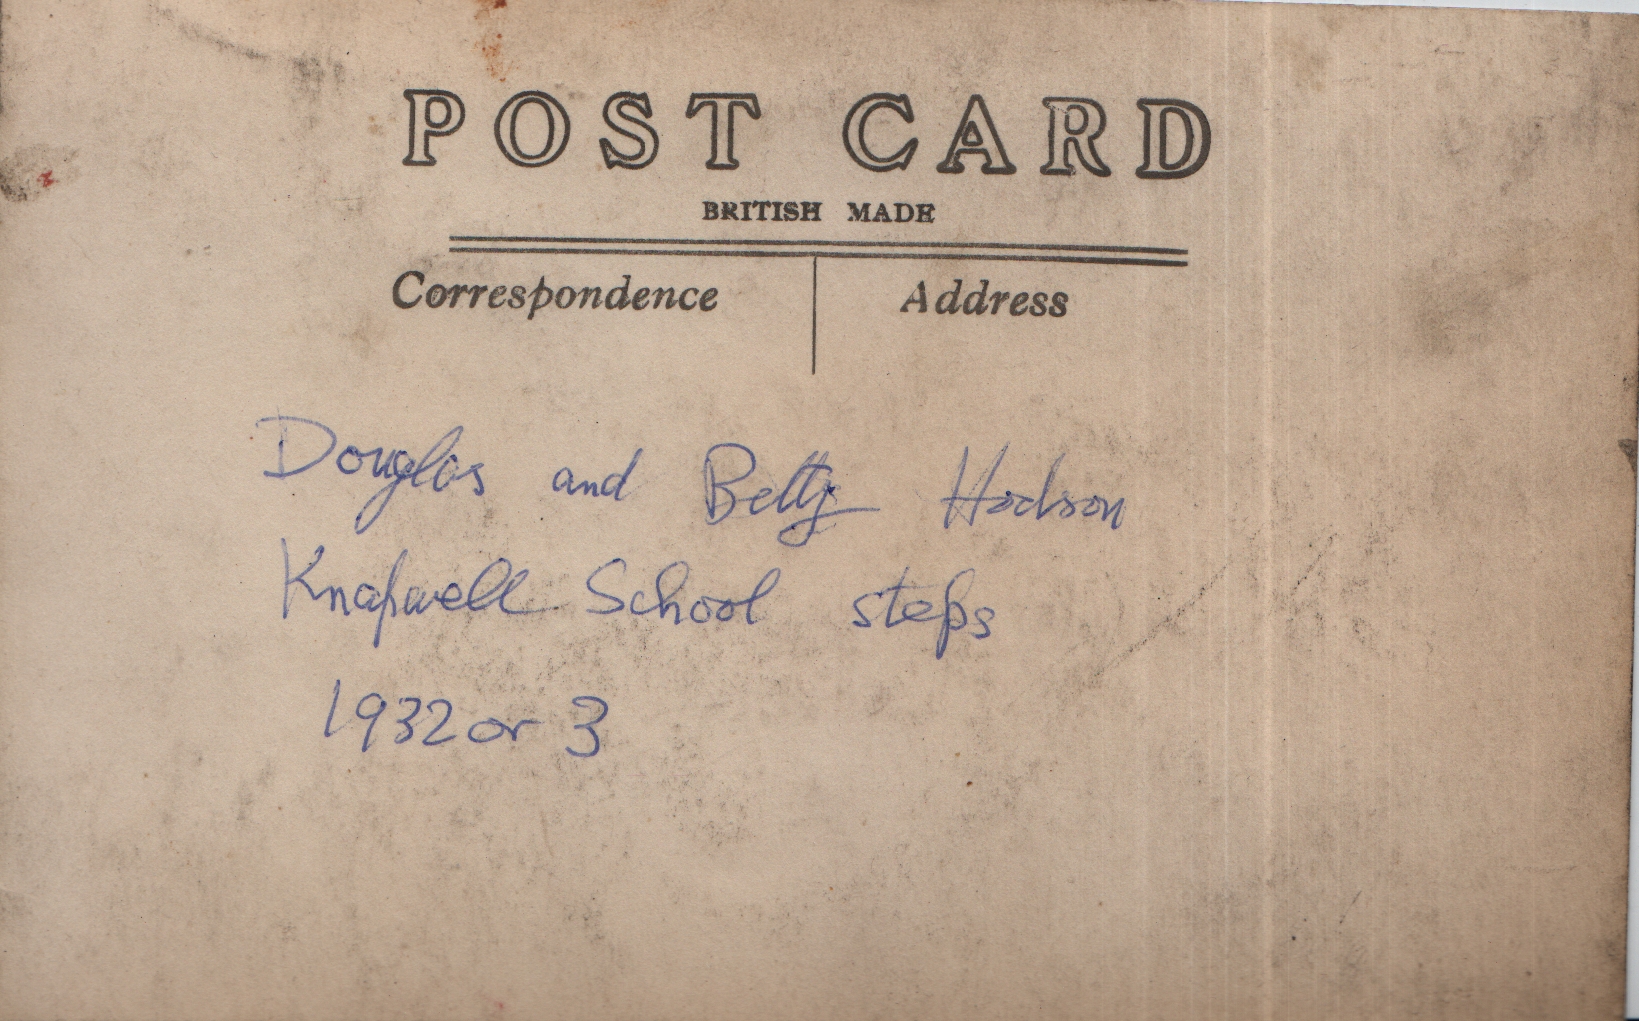 POST CARD
BRITISH MADE
Correspondence
Address
Douglas and Betty Hodson
Knapwell School steps
1932 or 3